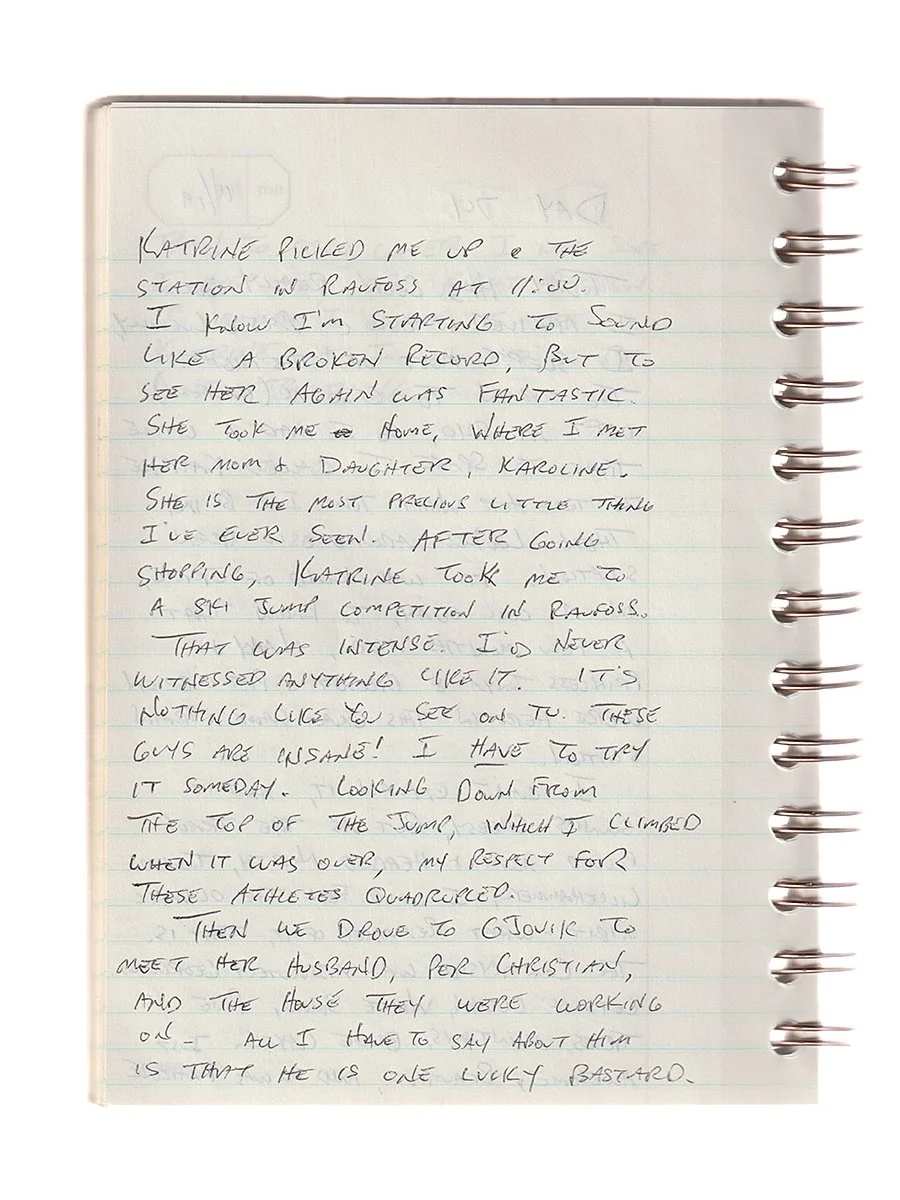 KATRINE PICKED ME UP @ THE
STATION IN RAUFOSS AT 11:00.
I KNOW I'M STARTING TO SOUND
LIKE A BROKEN RECORD, BUT TO
SEE HER AGAIN WAS FANTASTIC.
SHE TOOK ME HOME, WHERE I MET
HER MOM & DAUGHTER, KAROLINE.
SHE IS THE MOST PRECIOUS LITTLE THING
I'VE EVER SEEN. AFTER GOING
SHOPPING, KATRINE TOOK ME TO
A SKI JUMP COMPETITION IN RAUFOSS.
THAT WAS INTENSE. I'D NEVER
WITNESSED ANYTHING LIKE IT. IT'S
NOTHING LIKE YOU SEE ON TV. THESE
GUYS ARE INSANE! I HAVE TO TRY
IT SOMEDAY. LOOKING DOWN FROM
THE TOP OF THE JUMP, WHICH I CLIMBED
WHEN IT WAS OVER, MY RESPECT FOR
THESE ATHLETES QUADRUPLED.
THEN WE DROVE TO GJOVIK TO
MEET HER HUSBAND, PER CHRISTIAN,
AND THE HOUSE THEY WERE WORKING
ON - ALL I HAVE TO SAY ABOUT HIM
IS THAT HE IS ONE LUCKY BASTARD.